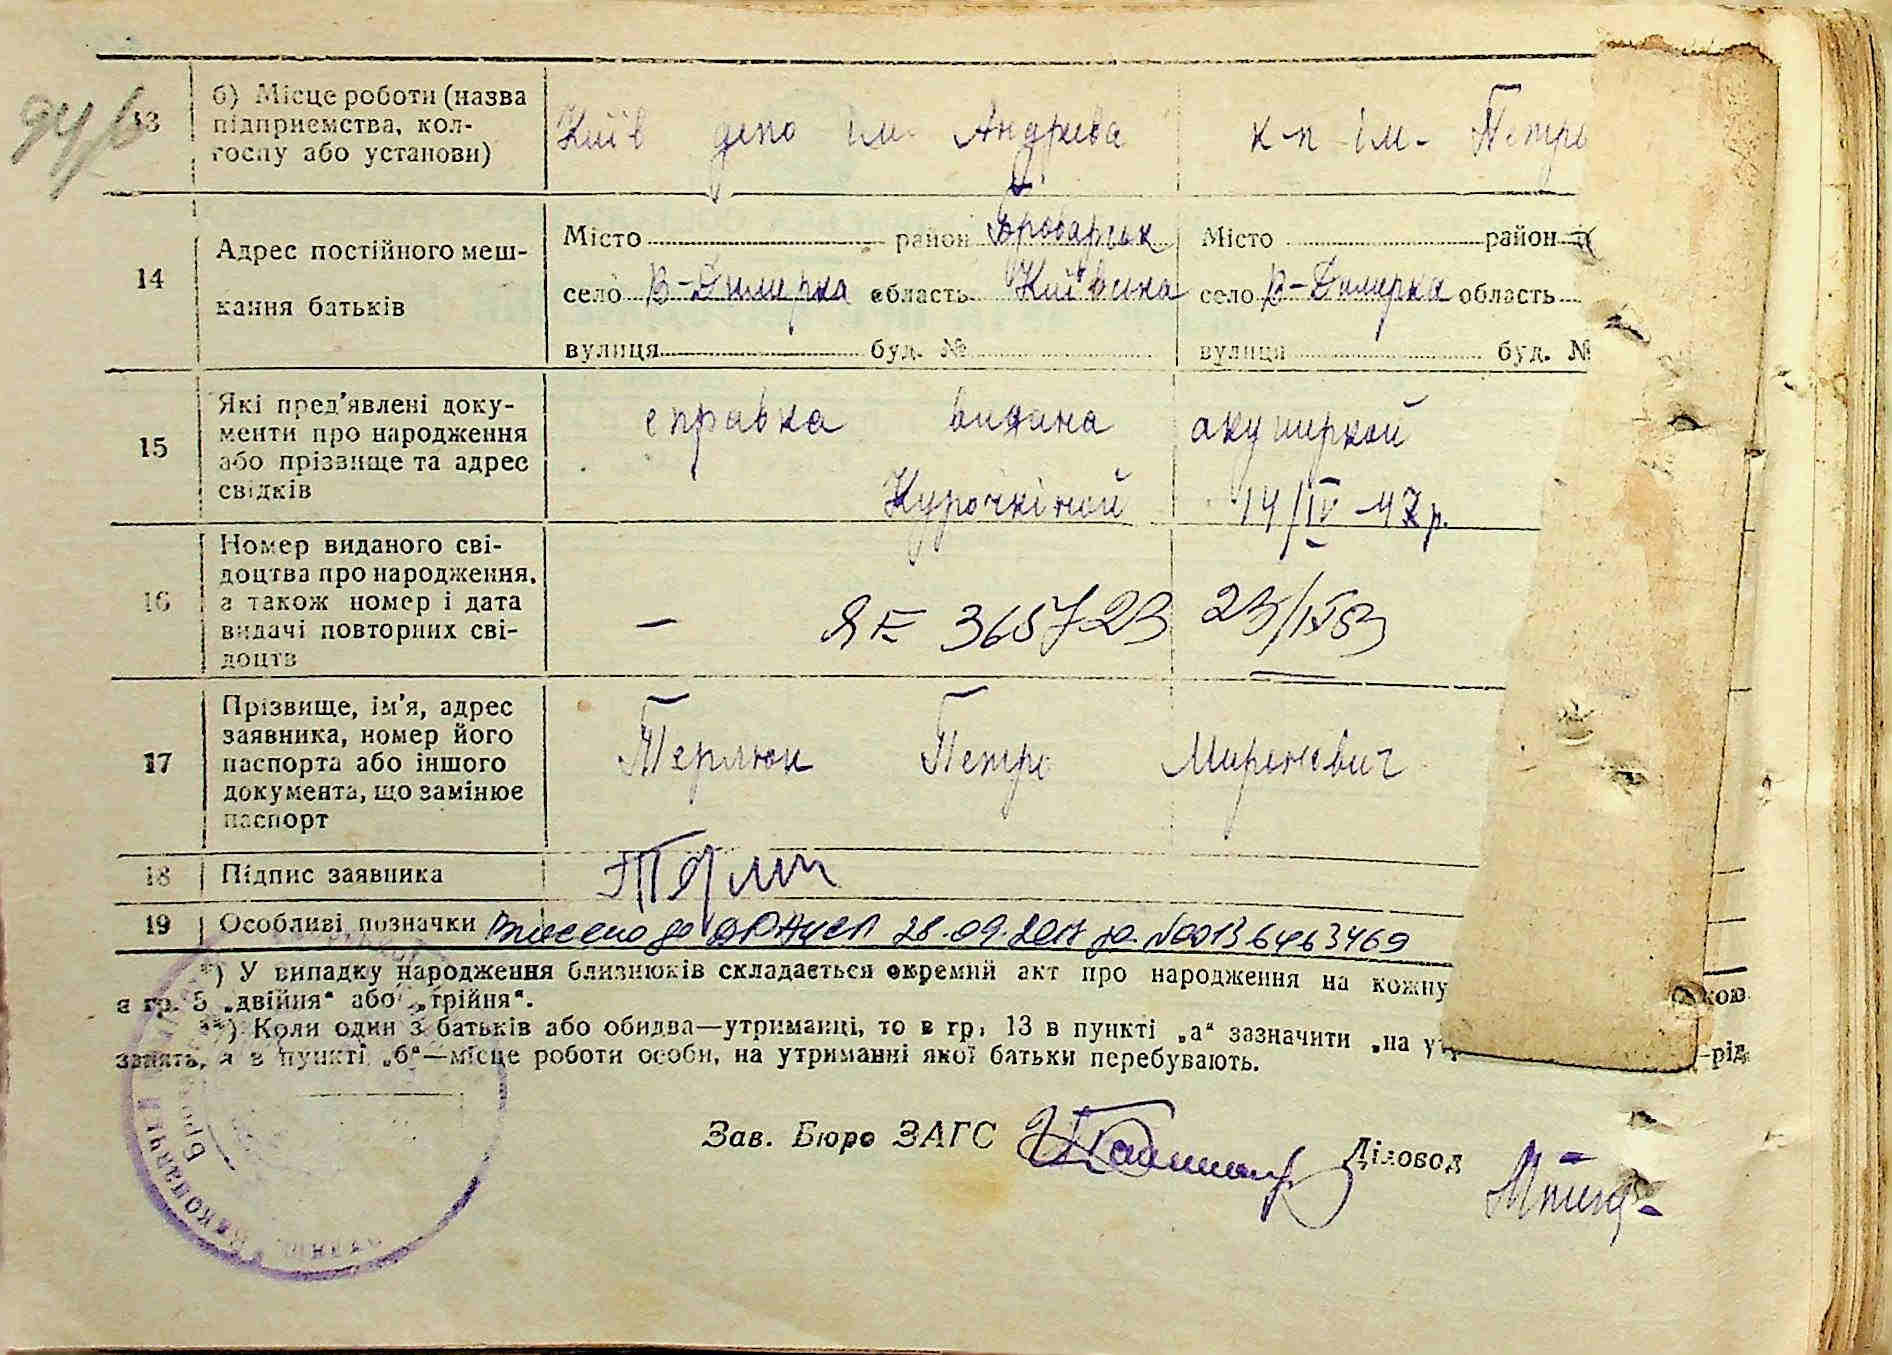 13 б) Місце роботи (назва
підприємства, кол-
госпу або установи)
Київ депо ім. Андреєва к-п ім. Петро
14 Адрес постійного меш-
кання батьків
Місто район Броварськ Місто район
село В-Димерка область Київська село В-Димерка область
вулиця буд. № вулиця буд. №
15 Які пред'явлені доку-
менти про народження
або прізвище та адрес
свідків
справка видана акушеркой
Курочкіной 14/IV-47р.
16 Номер виданого сві-
доцтва про народження,
а також номер і дата
видачі повторних сві-
доцтв
— ЯЕ 365723 23/IX53
17 Прізвище, ім'я, адрес
заявника, номер його
паспорта або іншого
документа, що замінює
паспорт
Терлюк Петро Миронович
18 Підпис заявника
19 Особливі позначки Внесено до ДРАЦСГ 28.09.2017 р. №00136463469
*) У випадку народження близнюків складається окремий акт про народження на кожну кою
в гр. 5 „двійня“ або „трійня“.
**) Коли один з батьків або обидва—утриманці, то в гр. 13 в пункті „а“ зазначити „на -рід
занять, а в пункті „б“—місце роботи особи, на утриманні якої батьки перебувають.
Зав. Бюро ЗАГС Діловод